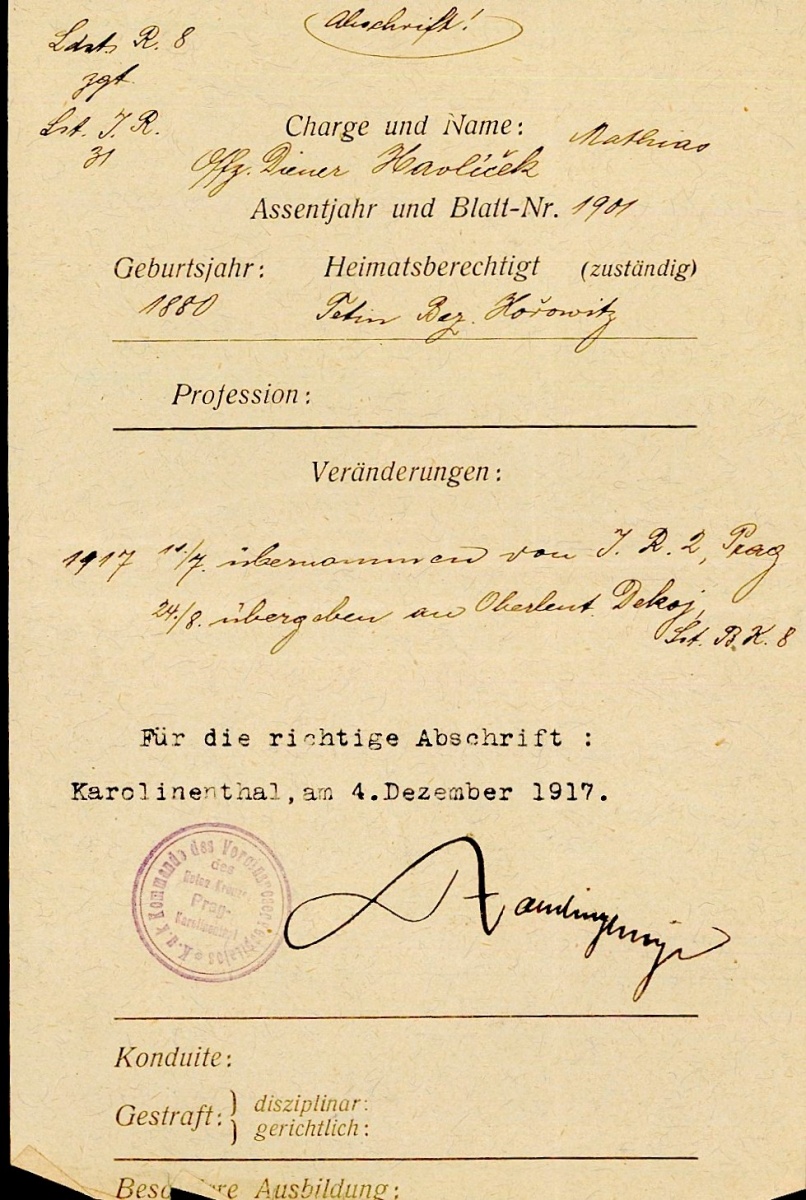 Abschrift!
Ldst. R. 8
zgt.
Lst. I. R.
31
Charge und Name: Mathias
Offz. Diener Havlíček
Assentjahr und Blatt-Nr. 1901
Geburtsjahr: Heimatsberechtigt (zuständig)
1880 Tetin Bez. Hořowitz
Profession:
Veränderungen:
1917 11/7. übernommen von I. R. 2, Prag
24./8. übergeben an Oberleut. Dekoj,
Lst. B. K. 8
Für die richtige Abschrift :
Karolinenthal, am 4.Dezember 1917.
K.u.k Kommando des Vereins-
des
Roten Kreuzes
Prag-
Karolinenthal
Konduite:
Gestraft: } disziplinar:
gerichtlich:
Besondere Ausbildung: